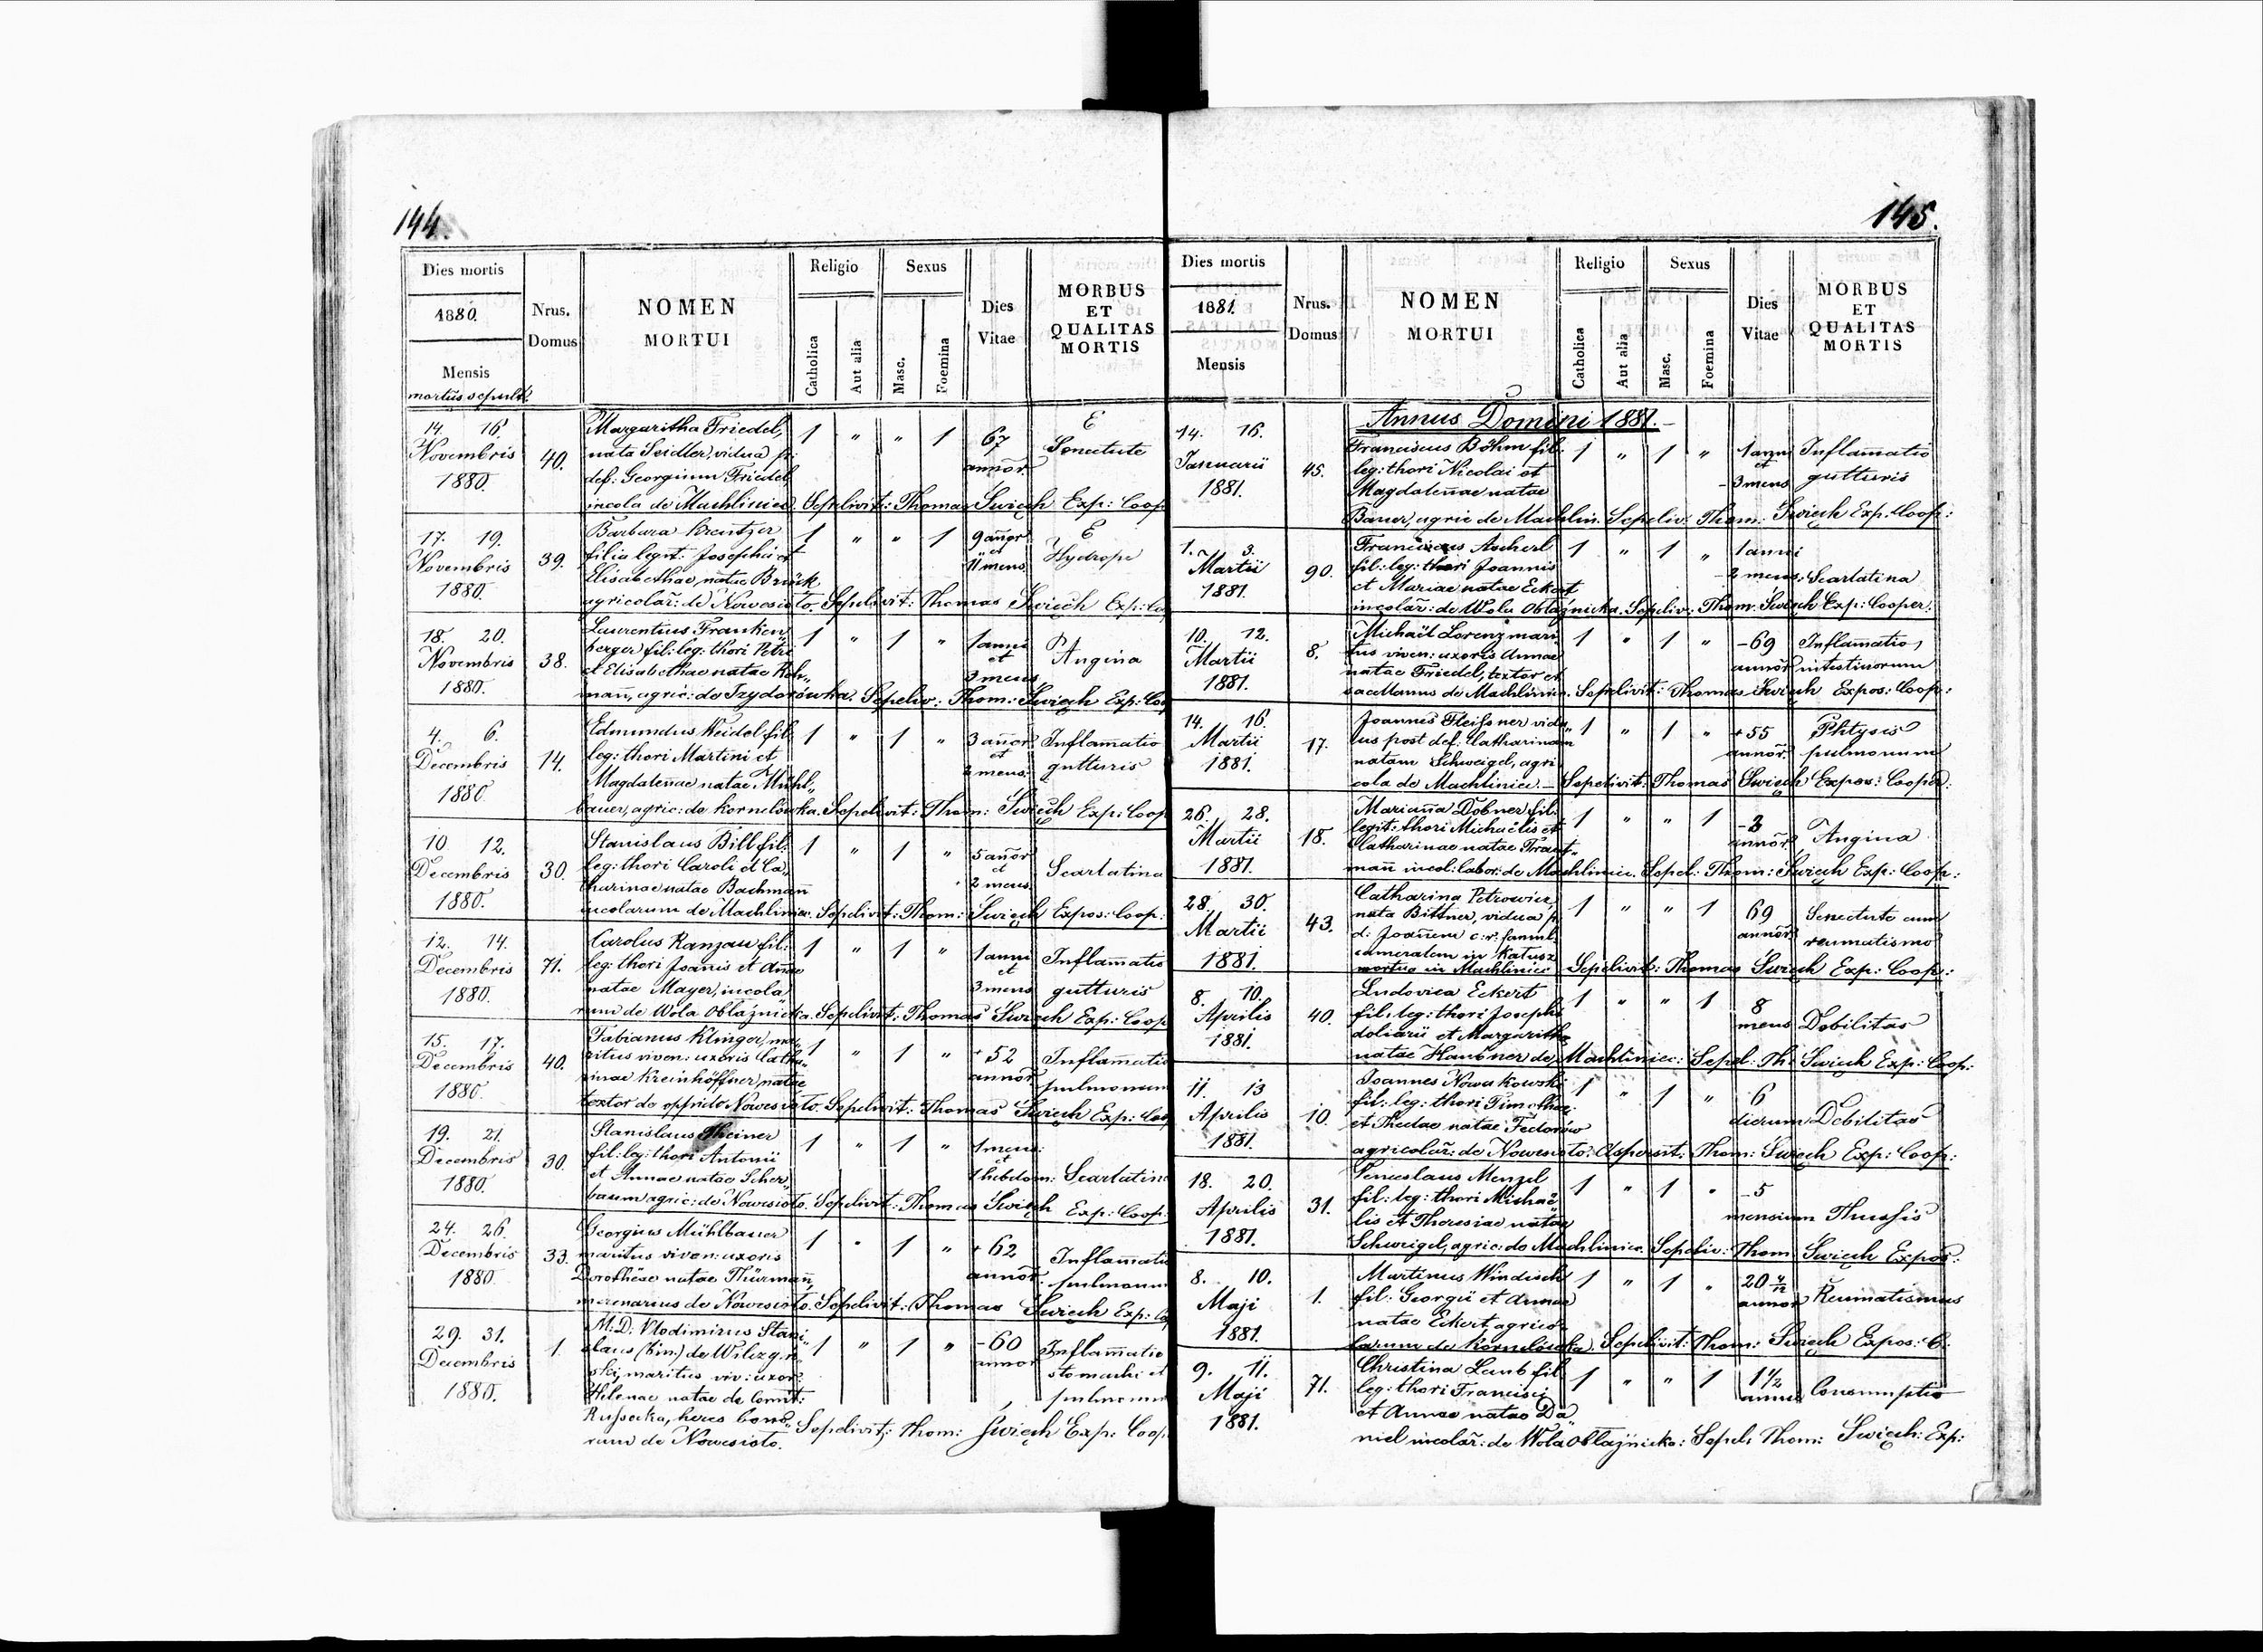 144.
Dies mortis
1880.
Mensis
mortūs sepult:
Nrus. Domus
NOMEN MORTUI
Religio
Catholica
Aut alia
Sexus
Masc.
Foemina
Dies Vitae
MORBUS ET QUALITAS MORTIS
14. 16. Novembris 1880. 40.
Margaritha Friedel,
nata Seidler, vidua p:
def: Georgium Friedel,
incola de Machliniec. Sepelivit: Thomas Swięch Exp: Coop
1 " " 1 67 annor E Senectute
17. 19. Novembris 1880. 39.
Barbara Kreutzer
filia legit: Josephi et
Elisabethae natae Brück
agricolar̄: de Nowesioło. Sepelivit: Thomas Swięch Exp: Co
1 " " 1 9 añor et 11 mens. E Hydrope
18. 20. Novembris 1880. 38.
Laurentius Franken
berger fil: leg: thori Petri
et Elisabethae natae Koh„
mañ, agric: de Izydorówka. Sepeliv: Thom: Swięch Exp: Coo
1 " 1 " 1 anni et 3 mens Angina
4. 6. Decembris 1880 14.
Edmundus Weidel fil:
leg: thori Martini et
Magdaleñae natae Mühl„
bauer, agric: de Kornelówka. Sepelivit: Thom: Swięch Exp: Coop
1 " 1 " 3 añor et 2 mens. Inflam̄atio gutturis
10. 12. Decembris 1880. 30.
Stanislaus Bill fil:
leg: thori Caroli et Ca„
tharinae natae Bachmañ
incolarum de Machliniec. Sepelivit: Thom: Swięch Expos: Coop:
1 " 1 " 5 añor et 2 mens Scarlatina
12. 14. Decembris 1880. 71.
Carolus Ranzau fil:
leg: thori Joanis et Añae
natae Mayer, incola
rum de Wola Obłaźnicka. Sepelivit: Thomas Swięch Exp: Coop
1 " 1 " 1 anni et 3 mens Inflam̄atio gutturis
15. 17. Decembris 1880. 40.
Fabianus Klinger, ma„
ritus viven: uxoris Catha„
rinae Kreinhöffner, natae
textor de oppido Nowesioło. Sepelivit: Thomas Swięch Exp: Coo
1 " 1 " + 52 annor Inflam̄atio pulmonum
19. 21. Decembris 1880. 30.
Stanislaus Theiner
fil: leg: thori Antonii
et Annae natae Scher„
baum agric: de Nowesioło. Sepelivit: Thomas Swięch Exp: Coop:
1 " 1 " 1 mens: et 1 hebdom: Scarlatina
24. 26. Decembris 1880. 33.
Georgius Mühlbauer
maritus viven: uxoris
Dorothëae natae Thürmañ,
mercenarius de Nowesioło. Sepelivit: Thomas Swięch Exp: Co
1 " 1 " + 62 annor. Inflam̄atio pulmonum
29. 31. Decembris 1880. 1.
M: D: Vlodimirus Stani„
slaus (bim.) de Wilczg
ski, maritus viv: uxor:
Helenae natae de Comit:
Russocka, heres bono„
rum de Nowesioło.
Sepelivit: Thom: Swięch Exp: Coop
1 " 1 " - 60 annor Inflam̄atio stomachi et pulmonum
145.
Dies mortis
1881.
Mensis
Nrus. Domus
NOMEN MORTUI
Religio
Catholica
Aut alia
Sexus
Masc.
Foemina
Dies Vitae
MORBUS ET QUALITAS MORTIS
Annus Domini 1881.
14. 16. Januarii 1881. 45.
Franciscus Böhm fil:
leg: thori Nicolai et
Magdaleñae natae
Bauer, agric de Machlin. Sepeliv: Thom: Swięch Exp: Coop:
1 " 1 " 1 anni et 3 mens Inflam̄atio gutturis
1. 3. Martii 1881. 90.
Franciscus Ascherl
fil: leg: thori Joannis
et Mariae natae Eckert
incolar̄: de Wola Obłaźnicka. Sepeliv: Thom. Swięch Exp: Cooper:
1 " 1 " 1 anni 2 mens: Scarlatina
10. 12. Martii 1881. 8.
Michaël Lorenz mari
tus viven: uxoris Annae
natae Friedel, textor et
sacellanus de Machliniec. Sepelivit: Thomas Swięch Expos: Coop:
1 " 1 " - 69 annor̄ Inflam̄atio intestinorum
14. 16. Martii 1881. 17.
Joannes Fleissner vidu„
us post def. Catharinam
natam Schweigel, agri
cola de Machliniec. — Sepelivit: Thomas Swięch Expos: Cooper:
1 " 1 " + 55 annor̄ Phtysis pulmonum
26. 28. Martii 1881. 18.
Mariaña Dobner fil:
legit: thori Michaëlis et
Catharinae natae Traut„
mañ incol: labor: de Machliniec. Sepel: Thom: Swięch Exp: Coop:
1 " " 1 - 3 annor̄ Angina
28. 30. Martii 1881. 43.
Catharina Petrowicz,
nata Bittner, vidua p.
d: Joañem c: r: famul.
cameralem in Kałusz
mortua in Machliniec Sepelivit: Thomas Swięch Exp: Coop:
1 " " 1 69 annor̄ Senectute cum reumatismo
8. 10. Aprilis 1881. 40.
Ludovica Eckert
fil: leg: thori Josephi
doliarii et Margarithae
natae Haubner de Machliniec: Sepel: Th: Swięch Exp: Coop:
1 " " 1 8 mens Debilitas
11. 13 Aprilis 1881. 10.
Joannes Nowakowski
fil: leg: thori Timothei
et Theclae natae Fedorów
agricolar̄: de Nowesioło. Aspersit: Thom: Swięch Exp: Coop:
1 " 1 " 6 dierum Debilitas
18. 20. Aprilis 1881. 31.
Venceslaus Menzel
fil: leg: thori Michaë„
lis et Theresiae natae
Schweigel, agric: de Machliniec. Sepeliv: Thom: Swięch Expos:
1 " 1 " - 5 mensium Thussis
8. 10. Maji 1881. 1.
Martinus Windisch
fil: Georgii et Annae
natae Eckert, agrico„
larum de Kornelówka. Sepelivit: Thom: Swięch Expos: C:
1 " 1 " 20 annor Reumatismus
9. 11. Maji 1881. 71.
Christina Laub fil:
leg: thori Francisci
et Annae natae Da„
niel incolar̄: de Wola Obłaźnicka: Sepel: Thom: Swięch: Exp:
1 " " 1 1 1/2 annus Consumptio